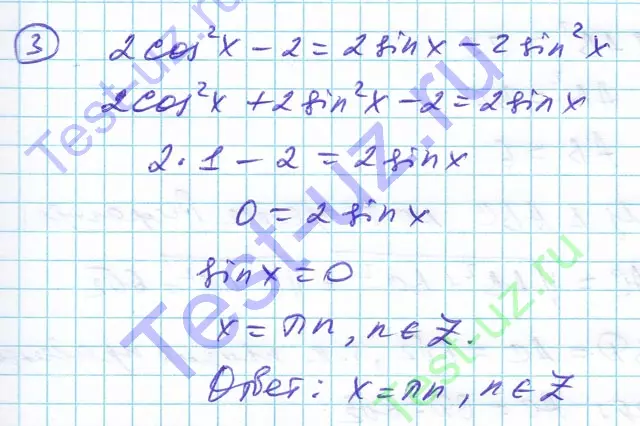 3 2cos²x - 2 = 2sinx - 2sin²x
2cos²x + 2sin²x - 2 = 2sinx
2·1 - 2 = 2sinx
0 = 2sinx
sinx = 0
x = πn, n ∈ Z.
Ответ: x = πn, n ∈ Z
Test-uz.ru
Test-uz.ru
Test-uz.ru